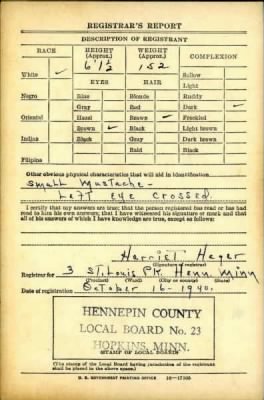 REGISTRAR'S REPORT
DESCRIPTION OF REGISTRANT
RACE HEIGHT (Approx.) WEIGHT (Approx.) COMPLEXION
6' 1½ 152
White ✓ Sallow
EYES HAIR Light
Negro Blue Blonde Ruddy
Gray Red Dark ✓
Oriental Hazel Brown ✓ Freckled
Brown ✓ Black Light brown
Indian Black Gray Dark brown
Bald Black
Filipino
Other obvious physical characteristics that will aid in identification
Small Mustache -
Left eye crossed
I certify that my answers are true; that the person registered has read or has had
read to him his own answers; that I have witnessed his signature or mark and that
all of his answers of which I have knowledge are true, except as follows:
Harriet Heger
(Signature of registrar)
Registrar for 3 St. Louis Pk. Henn Minn
(Precinct) (Ward) (City or county) (State)
Date of registration October 16 - 1940.
HENNEPIN COUNTY
LOCAL BOARD No. 23
HOPKINS, MINN.
STAMP OF LOCAL BOARD
(The stamp of the Local Board having jurisdiction of the registrant
shall be placed in the above space.)
U. S. GOVERNMENT PRINTING OFFICE 16—17105